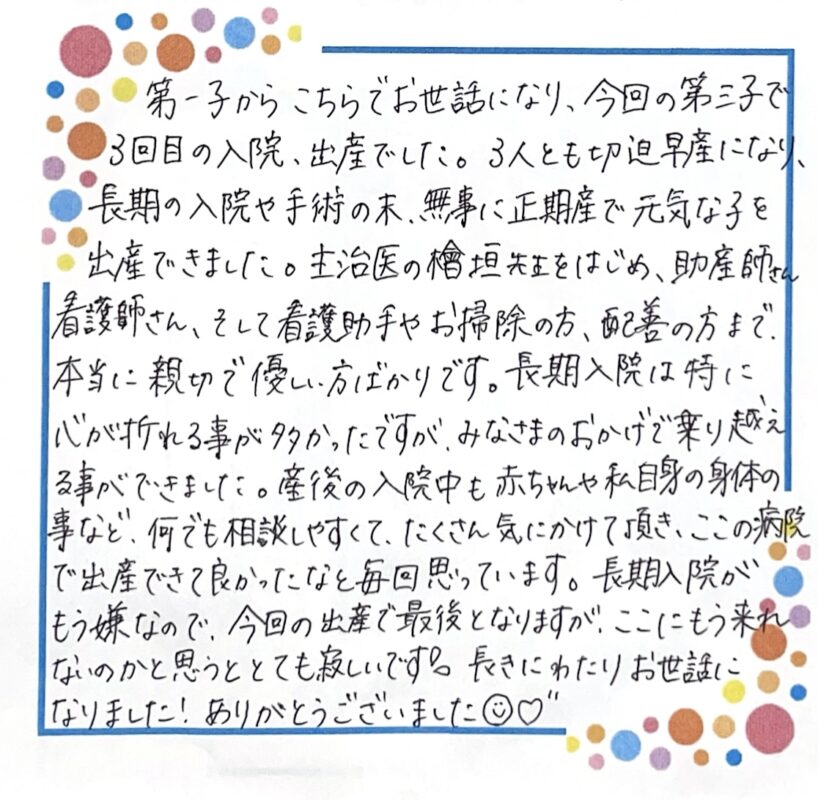 第一子からこちらでお世話になり、今回の第三子で
3回目の入院、出産でした。3人とも切迫早産になり、
長期の入院や手術の末、無事に正期産で元気な子を
出産できました。主治医の檜垣先生をはじめ、助産師さん
看護師さん、そして看護助手やお掃除の方、配善の方まで、
本当に親切で優しい方ばかりです。長期入院は特に
心が折れる事が多かったですが、みなさまのおかげで乗り越え
る事ができました。産後の入院中も赤ちゃんや私自身の身体の
事など、何でも相談しやすくて、たくさん気にかけて頂き、ここの病院
で出産できて良かったなと毎回思っています。長期入院が
もう嫌なので、今回の出産で最後となりますが、ここにもう来れ
ないのかと思うととても寂しいです。長きにわたりお世話に
なりました!ありがとうございました☺♡"